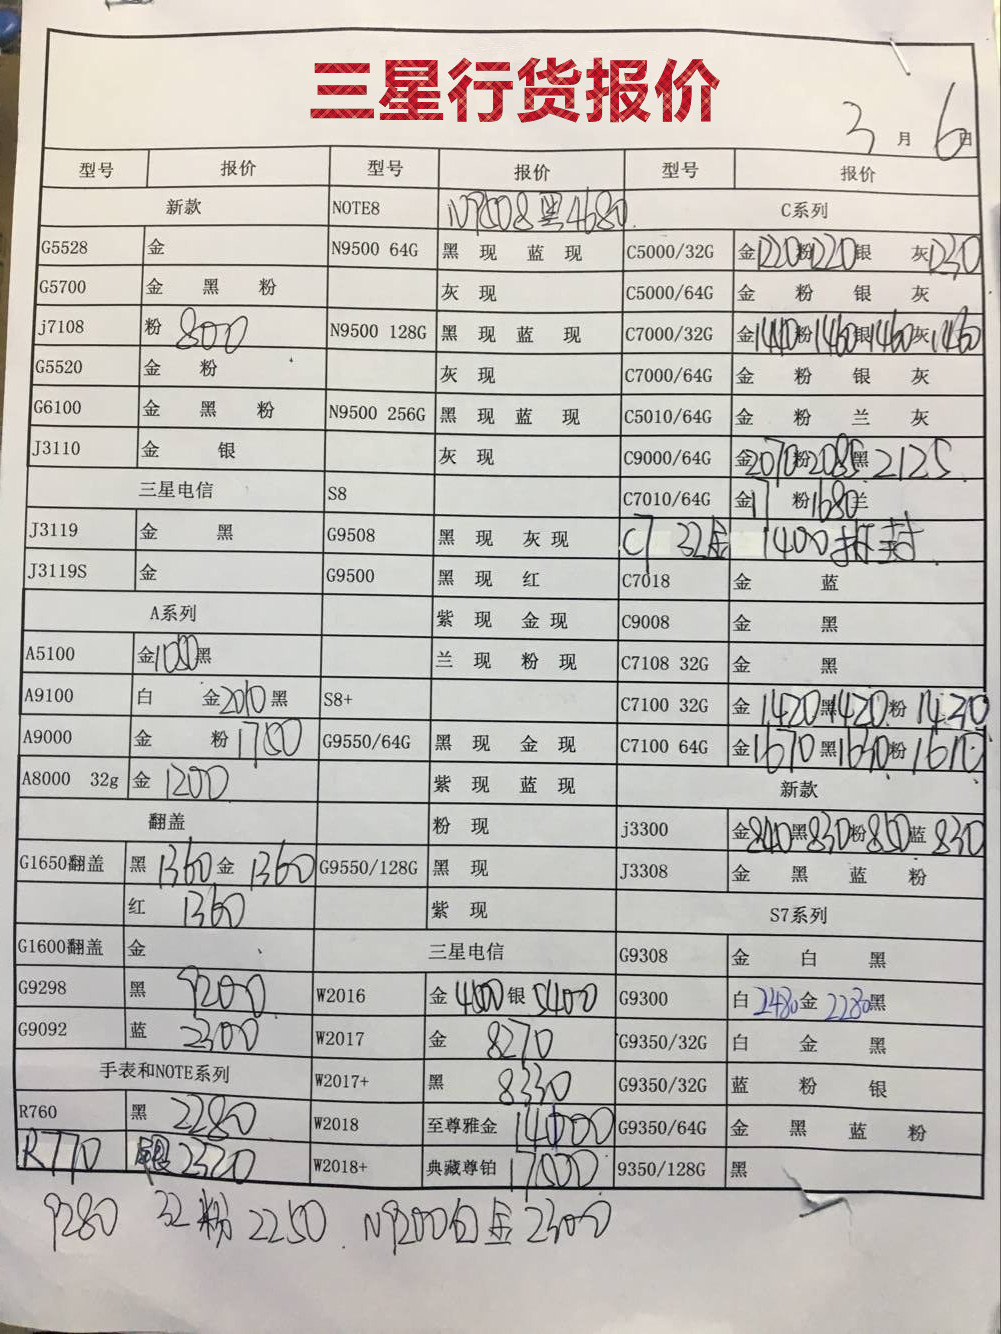 三星行货报价
3月6日
型号 报价 型号 报价 型号 报价
新款 NOTE8 N9508黑4680 C系列
G5528 金 N9500 64G 黑 现 蓝 现 C5000/32G 金1220粉1220银 灰1230
G5700 金 黑 粉 灰 现 C5000/64G 金 粉 银 灰
j7108 粉 800 N9500 128G 黑 现 蓝 现 C7000/32G 金1440粉1460银1460灰1460
G5520 金 粉 灰 现 C7000/64G 金 粉 银 灰
G6100 金 黑 粉 N9500 256G 黑 现 蓝 现 C5010/64G 金 粉 兰 灰
J3110 金 银 灰 现 C9000/64G 金2070粉2085黑2125
三星电信 S8 C7010/64G 金17 粉1680兰
J3119 金 黑 G9508 黑 现 灰 现 C7 32金 1400拆封
J3119S 金 G9500 黑 现 红 C7018 金 蓝
A系列 紫 现 金 现 C9008 金 黑
A5100 金1080黑 兰 现 粉 现 C7108 32G 金 黑
A9100 白 金2010黑 S8+ C7100 32G 金1420黑1420粉1420
A9000 金 粉1780 G9550/64G 黑 现 金 现 C7100 64G 金1670黑1630粉1610
A8000 32g 金 1200 紫 现 蓝 现 新款
翻盖 粉 现 j3300 金840黑830粉850蓝830
G1650翻盖 黑 1360金 1360 G9550/128G 黑 现 J3308 金 黑 蓝 粉
红 1360 紫 现 S7系列
G1600翻盖 金 三星电信 G9308 金 白 黑
G9298 黑 9200 W2016 金 银 5400 G9300 白2480金2280黑
G9092 蓝 2300 W2017 金 8270 G9350/32G 白 金 黑
手表和NOTE系列 W2017+ 黑 8330 G9350/32G 蓝 粉 银
R760 黑 2280 W2018 至尊雅金 14000 G9350/64G 金 黑 蓝 粉
R770 银2320 W2018+ 典藏尊铂 17800 9350/128G 黑
9280 32粉2250 N9200白金2300